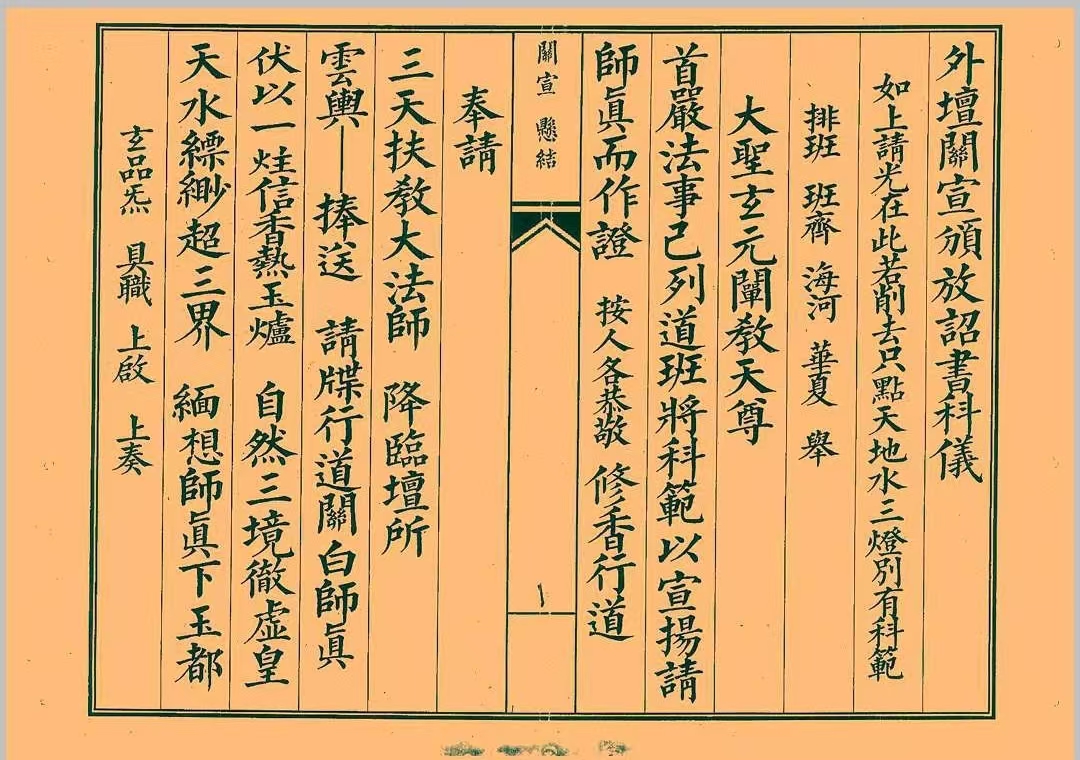 外壇關宣頒放詔書科儀
如上請光在此若削去只點天地水三燈別有科範
排班 班齊 海河 華夏 舉
大聖玄元闡教天尊
首嚴法事已列道班將科範以宣揚請
師眞而作證 按人各恭敬 修香行道
關宣 懸結
奉請
三天扶教大法師 降臨壇所
雲輿——捧送 請牒行道關白師眞
伏以一炷信香熱玉爐 自然三境徹虛皇
天水縹緲超三界 緬想師眞下玉都
玄品炁 具職 上啟 上奏